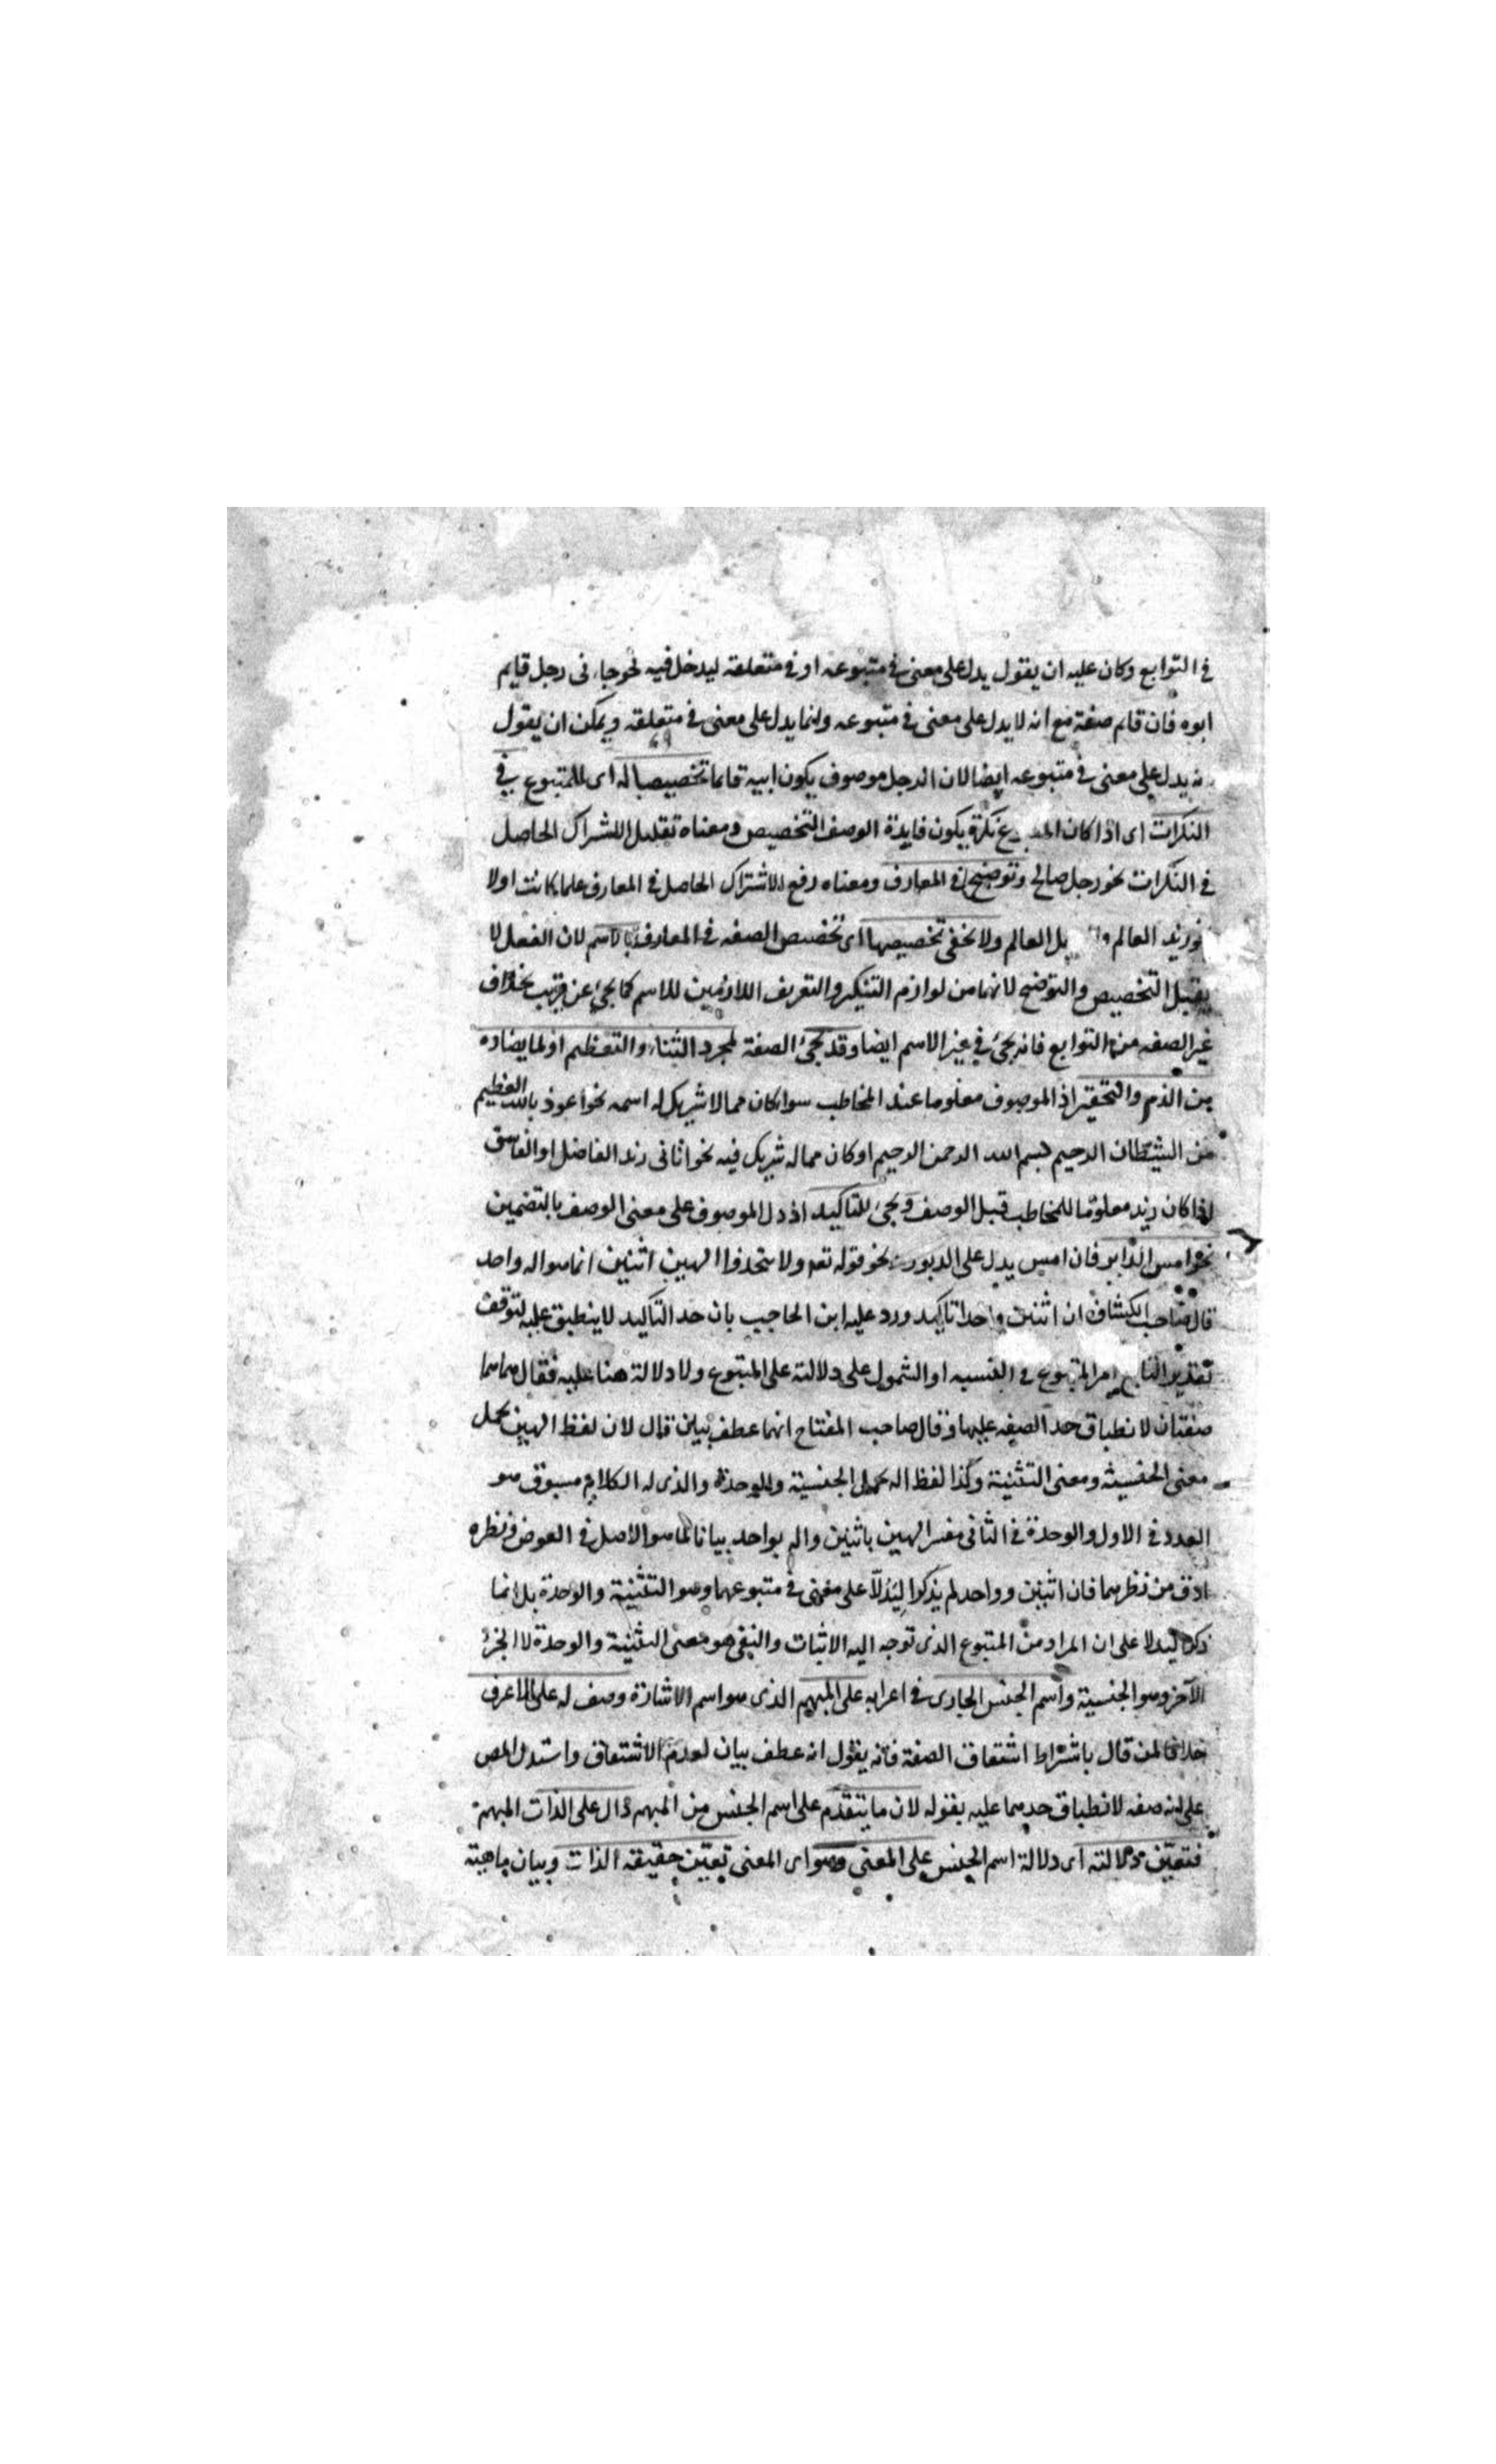 في التوابع وكان عليه ان يقول يدل على معنى في متبوعه او في متعلقه ليدخل فيه نحو جاءنى رجل قايم
ابوه فان قايم صفة مع انه لا يدل على معنى في متبوعه وانما يدل على معنى في متعلقه ويمكن ان يقول
يدل على معنى في متبوعه ايضا لان الرجل موصوف بكون ابيه قائما تخصيصا له اى للمتبوع في
النكرات اى اذا كان نكرة يكون فايدة الوصف التخصيص ومعناه تقليل الاشتراك الحاصل
في النكرات نحو رجل صالح وتوضيح في المعارف ومعناه رفع الاشتراك الحاصل في المعارف علما كانت اولا
زيد العالم العالم ولا يخفى تخصيصها اى تخصيص الصفه في المعارف بالاسم لان الفعل لا
يقبل التخصيص والتوضيح لانهما من لوازم التنكير والتعريف اللازمين للاسم كما يجئ عن قريب بخلاف
غير الصفه من التوابع فانه يجئ في غير الاسم ايضا وقد يجئ الصفة لمجرد الثناء والتعظيم او لما يضاده
من الذم والتحقير اذ الموصوف معلوما عند المخاطب سوا كان مما لا شريك له اسمه نحو اعوذ بالله العظيم
من الشيطان الرجيم بسم الله الرحمن الرحيم او كان مما له شريك فيه نحو اتانى زيد الفاضل او الفاسق
اذا كان زيد معلوما للمخاطب قبل الوصف ويجئ للتاكيد اذ دل الموصوف على معنى الوصف بالتضمين
نحو امس الدابر فان امس يدل على الدبور نحو قوله تعه ولا تتخذوا الهين اثنين انما هو اله واحد
قال صاحب الكشاف ان اثنين واحدا تاكيد ورد عليه ابن الحاجب بان حد التاكيد لا ينطبق عليه لتوقف
تقدير التابع امر المتبوع في النسبه او الشمول على دلالته على المتبوع ولا دلالة هنا عليه فقال هما
صفتان لانطباق حد الصفه عليهما وقال صاحب المفتاح انهما عطف بيان قال لان لفظ الهين يحمل
معنى الجنسية ومعنى التثنية وكذا لفظ اله يحمل الجنسية والوحدة والذى له الكلام مسوق هو
العدد في الاول والوحدة في الثانى ففسر الهين باثنين واله بواحد بيانا لما هو الاصل في الغرض ونظره
ادق من نظرهما فان اثنين وواحد لم يذكرا ليدلا على معنى في متبوعهما وهو التثنية والوحدة بل انما
ذكرا ليدلا على ان المراد من المتبوع الذى توجه اليه الاثبات والنفى هو معنى التثنية والوحدة لا الجزء
الآخر وهو الجنسية واسم الجنس الجارى في اعرابه على المبهم الذى هو اسم الاشارة وصف له على الاعرف
خلافا لمن قال باشتراط اشتقاق الصفة فانه يقول انه عطف بيان لعدم الاشتقاق واستدل المص
على انه صفه لانطباق حدهما عليه بقوله لان ما يتقدم على اسم الجنس من المبهم دال على الذات المبهمة
فتعين دلالته اى دلالة اسم الجنس على المعنى وهو اى المعنى تعين حقيقه الذات وبيان ماهيته